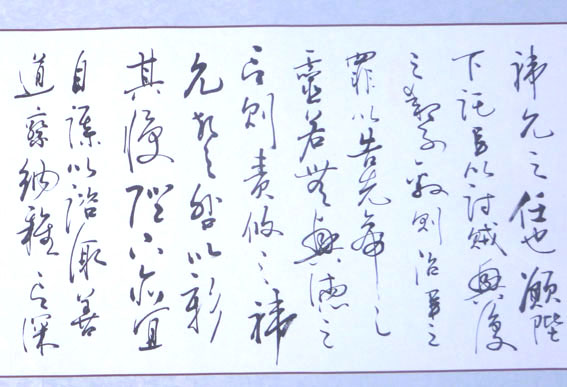 禕允之任也願陛
下託臣以討賊興復
之效不效則治臣之
罪以告先帝之
靈若無興德之
言則責攸之禕
允等之咎以彰
其慢陛下亦宜
自謀以諮諏善
道察納雅言深